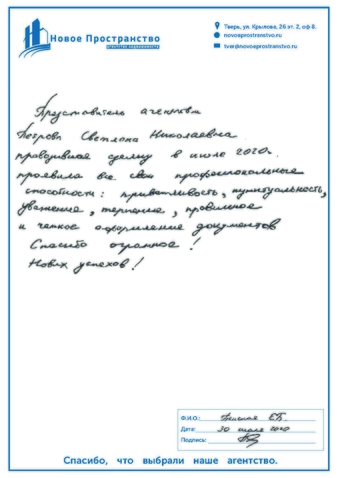 Новое Пространство
агентство недвижимости
Тверь, ул. Крылова, 26 эт. 2, оф 8.
novoeprostranstvo.ru
tver@novoeprostranstvo.ru
Представитель агентства
Петрова Светлана Николаевна
проводившая сделку в июле 2020г.
проявила все свои профессиональные
способности: приветливость, пунктуальность,
уважение, терпение, правильное
и четкое оформление документов
Спасибо огромное!
Новых успехов!
Ф.И.О.: Е.Б.
Дата: 30 июля 2020
Подпись:
Спасибо, что выбрали наше агентство.